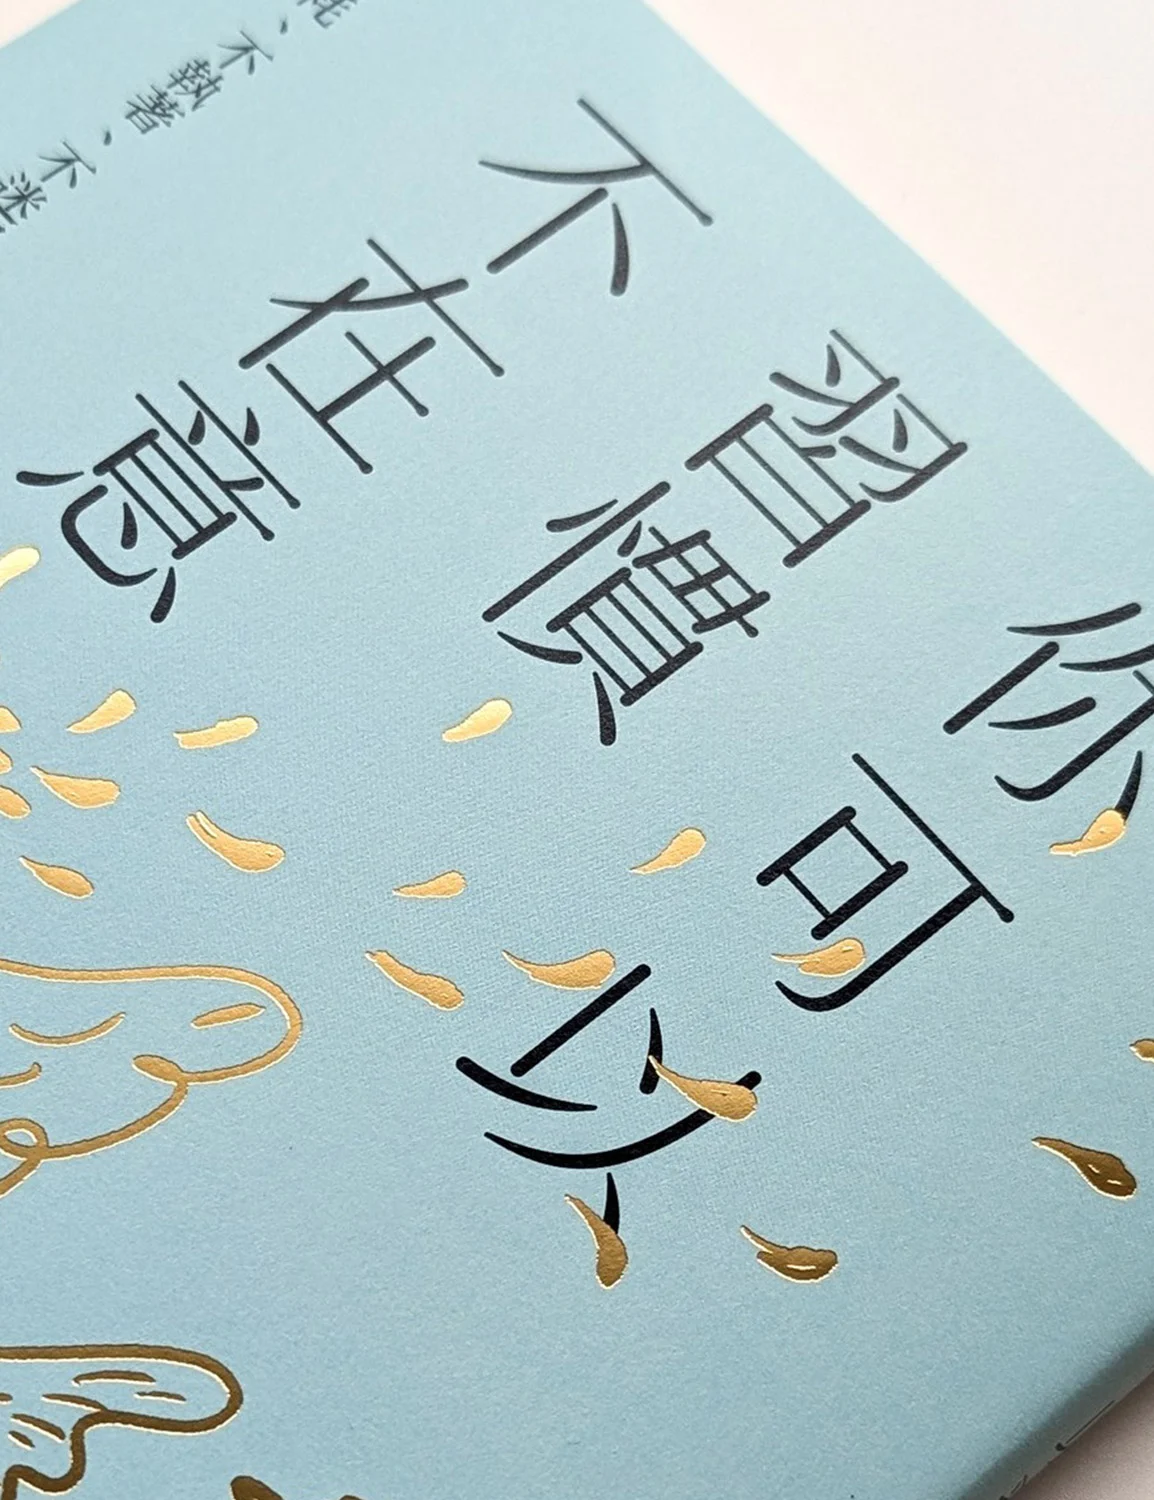 你可以
習慣
不在意
、不執著、不迷